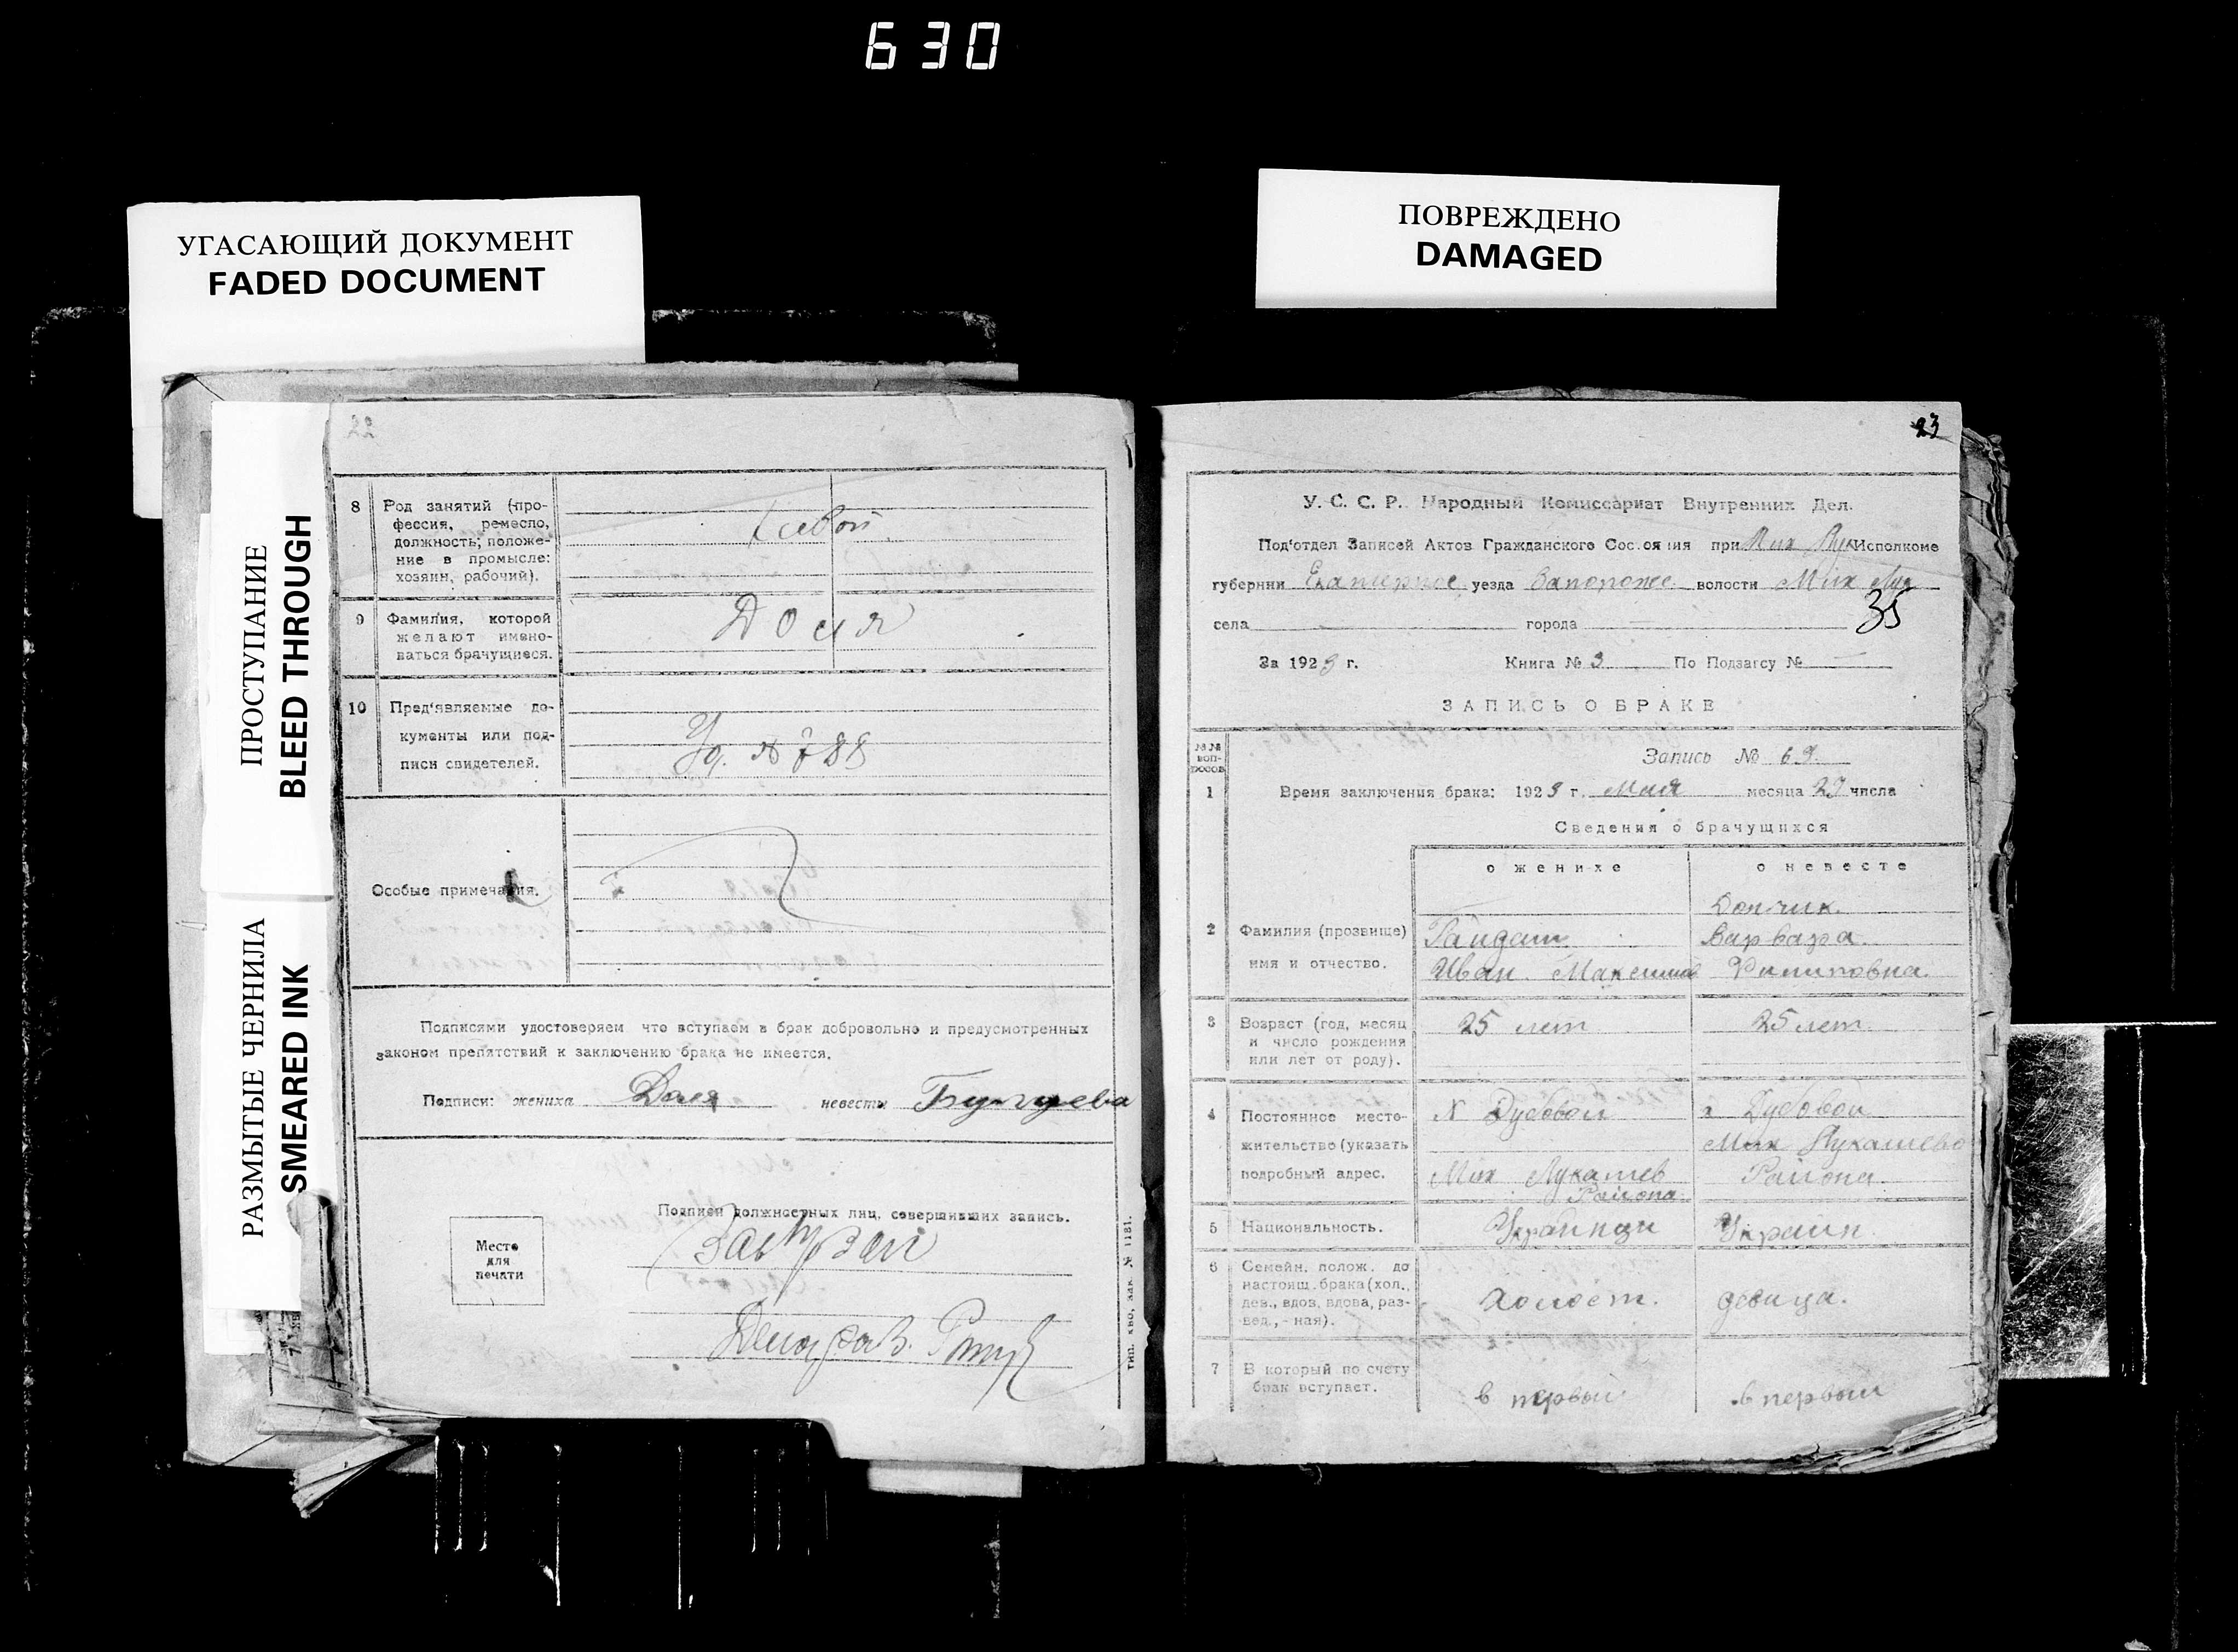 630
УГАСАЮЩИЙ ДОКУМЕНТ
FADED DOCUMENT
ПОВРЕЖДЕНО
DAMAGED
ПРОСТУПАНИЕ
BLEED THROUGH
РАЗМЫТЫЕ ЧЕРНИЛА
SMEARED INK
22
8 Род занятий (про-
фессия, ремесло,
должность; положе-
ние в промысле:
хозяин, рабочий).
9 Фамилия, которой
желают имено-
ваться брачущиеся.
Доля
10 Пред'являемые до-
кументы или под-
писи свидетелей.
Уд. № 788
Особые примечания.
Подписями удостоверяем что вступаем в брак добровольно и предусмотренных
законом препятствий к заключению брака не имеется.
Подписи: жениха Доля невесты
Подписи должностных лиц, совершивших запись.
Место
для
печати
тип. кво, зак. № 1181.
23
У. С. С. Р. Народный Комиссариат Внутренних Дел.
Под'отдел Записей Актов Гражданского Состояния при Мих Лук Исполкоме
губернии уезда Запорож волости Мих Лук
35
села города
За 1923 г. Книга № 3 По Подзагсу №
ЗАПИСЬ О БРАКЕ
№№
воп-
росов
Запись № 69.
1 Время заключения брака: 1923 г. Мая месяца 29 числа
Сведения о брачущихся
о женихе о невесте
2 Фамилия (прозвище)
имя и отчество.
Гайдаш
Иван Максимов
Дончик.
Варвара.
Филиповна.
3 Возраст (год, месяц
и число рождения
или лет от роду).
25 лет 25 лет.
4 Постоянное место-
жительство (указать
подробный адрес.
Х Дубовой
Мих Лукашев
Района
х Дубовой
Мих Лукашево
Района.
5 Национальность.
Украинци Украин.
6 Семейн. полож. до
настоящ. брака (хол.,
дев., вдов, вдова, раз-
вед., - ная).
холост. девица.
7 В который по счету
брак вступает.
в первый в первый